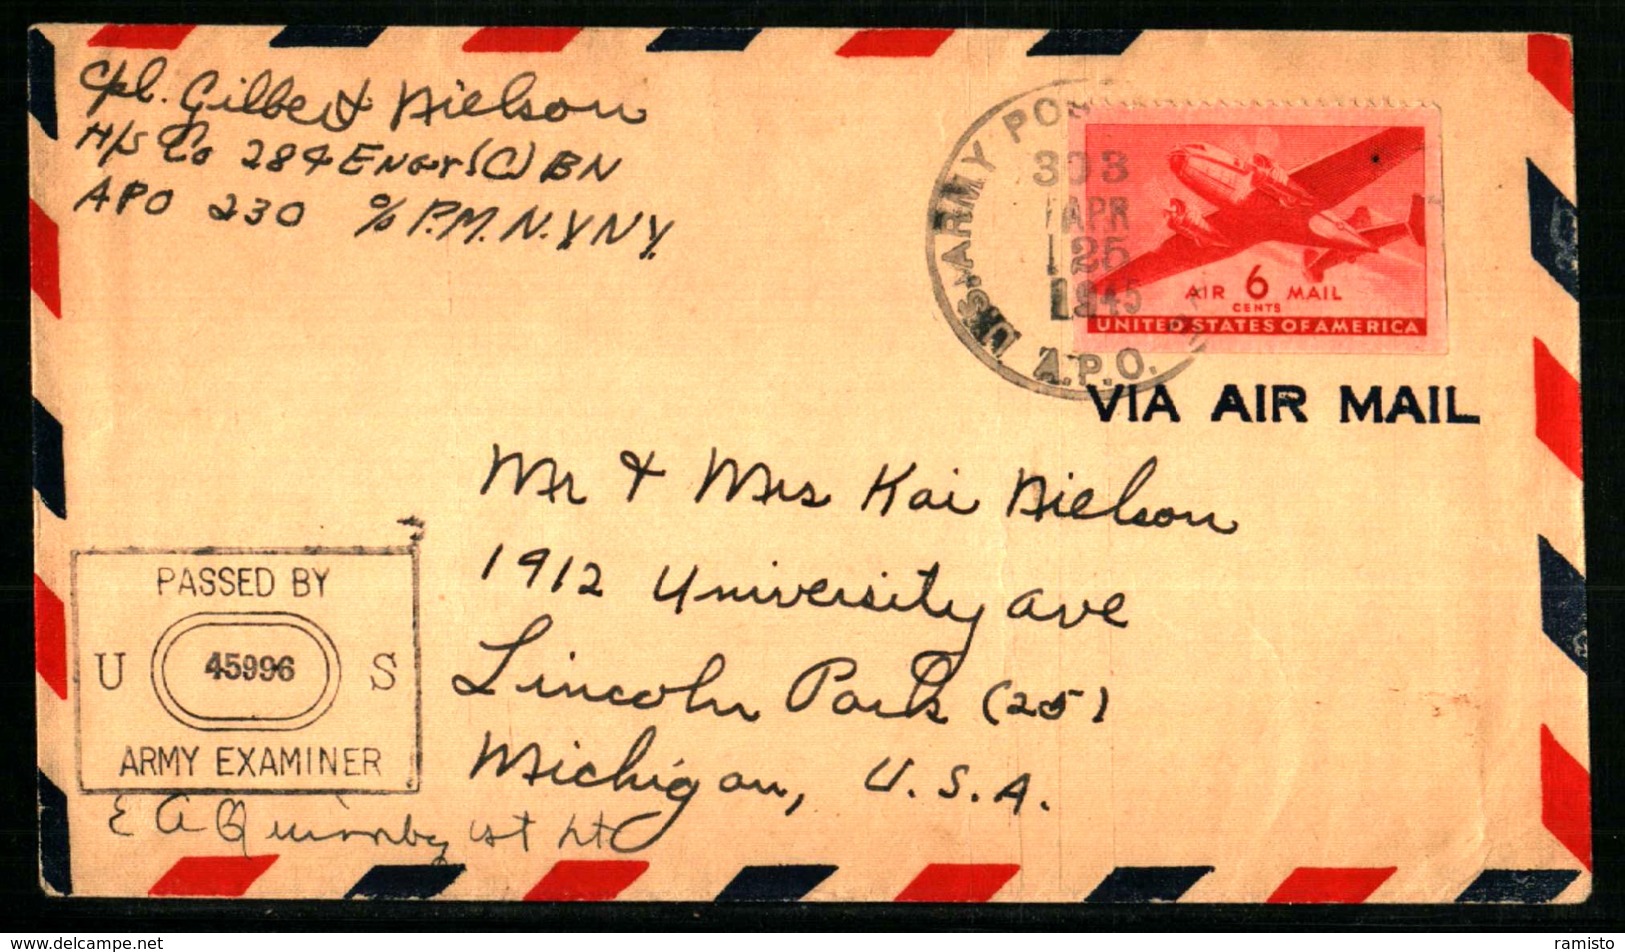 Cpl. Gilbert Nielson
H/S Co 284 Engr (C) BN
APO 230 % P.M. N.Y. N.Y.
U.S. ARMY POS
303
APR
25
1945
A.P.O.
AIR 6 MAIL
CENTS
UNITED STATES OF AMERICA
VIA AIR MAIL
Mr & Mrs Kai Nielson
1912 University Ave
Lincoln Park (25)
Michigan, U.S.A.
PASSED BY
U 45996 S
ARMY EXAMINER
E A Quimby 1st Lt
www.delcampe.net
ramisto